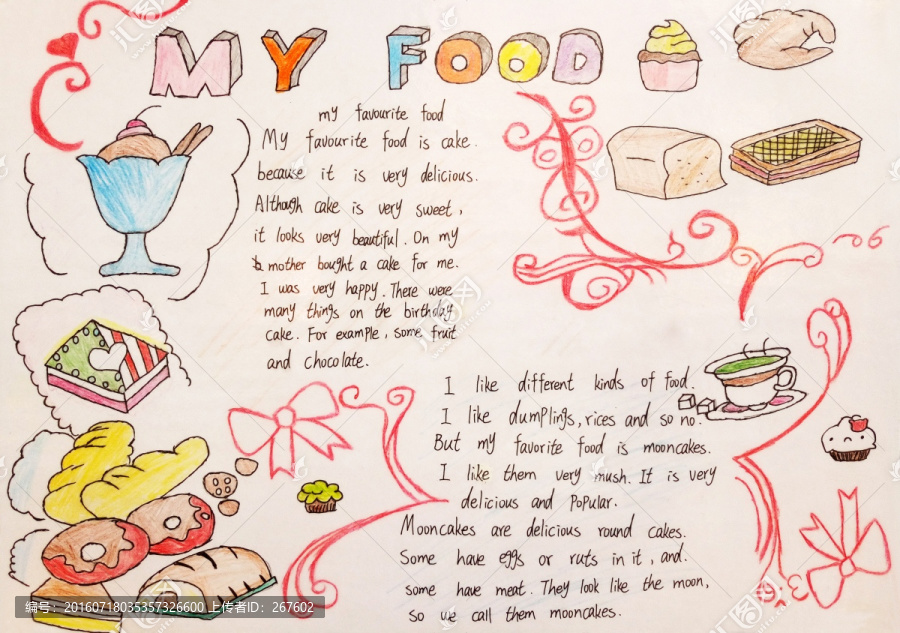 MY FOOD
my favourite food
My favourite food is cake.
because it is very delicious.
Although cake is very sweet,
it looks very beautiful. On my
mother bought a cake for me.
I was very happy. There were
many things on the birthday
cake. For example, some fruit
and chocolate.
I like different kinds of food.
I like dumplings, rices and so no.
But my favorite food is mooncakes.
I like them very mush. It is very
delicious and Popular.
Mooncakes are delicious round cakes.
Some have eggs or ruts in it, and.
some have meat. They look like the moon,
so we call them mooncakes.
编号：20160718035357326600 上传者ID：267602